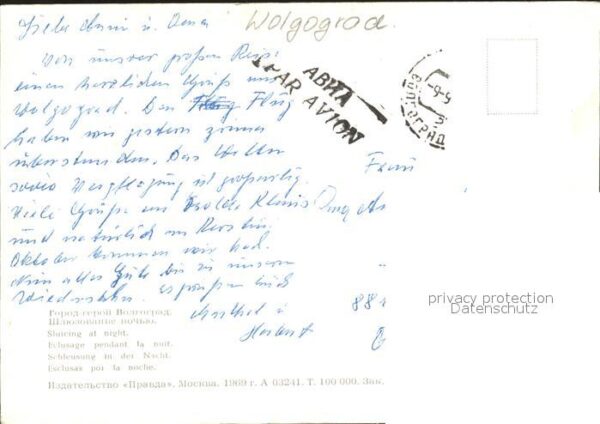 Wolgograd.
Liebe u. Oma
Von unserer großen Reise
einen herzlichen Gruß aus
Wolgograd. Den Flug
haben wir gestern prima
überstanden. Das Wetter
sowie Verpflegung ist großartig.
Viele Grüße an Klaus
und natürlich
Oktober kommen wir
Nun alles Gute bis zu unserem
Wiedersehn. Es grüßen Euch
u
Herbert
АВИА
PAR AVION
ВОЛГОГРАД
Frau
88
privacy protection
Datenschutz
Город-герой Волгоград.
Шлюзование ночью.
Sluicing at night.
Eclusage pendant la nuit.
Schleusung in der Nacht.
Esclusas por la noche.
Издательство «Правда». Москва. 1969 г. А 03241. Т. 100 000. Зак.